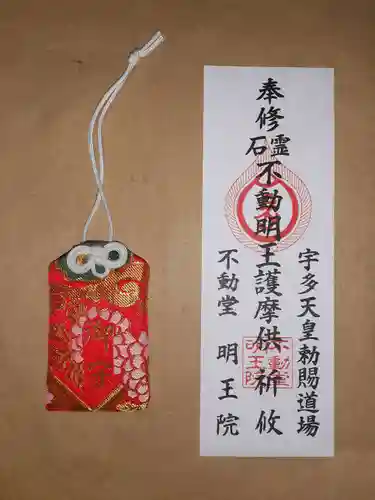 奉修霊石不動明王護摩供祈攸
宇多天皇勅賜道場
不動堂 明王院
不動堂
明王院